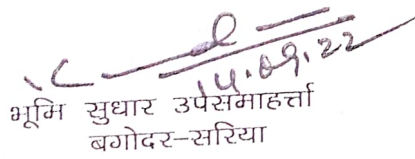 14.09.22
भूमि सुधार उपसमाहर्त्ता
बगोदर-सरिया